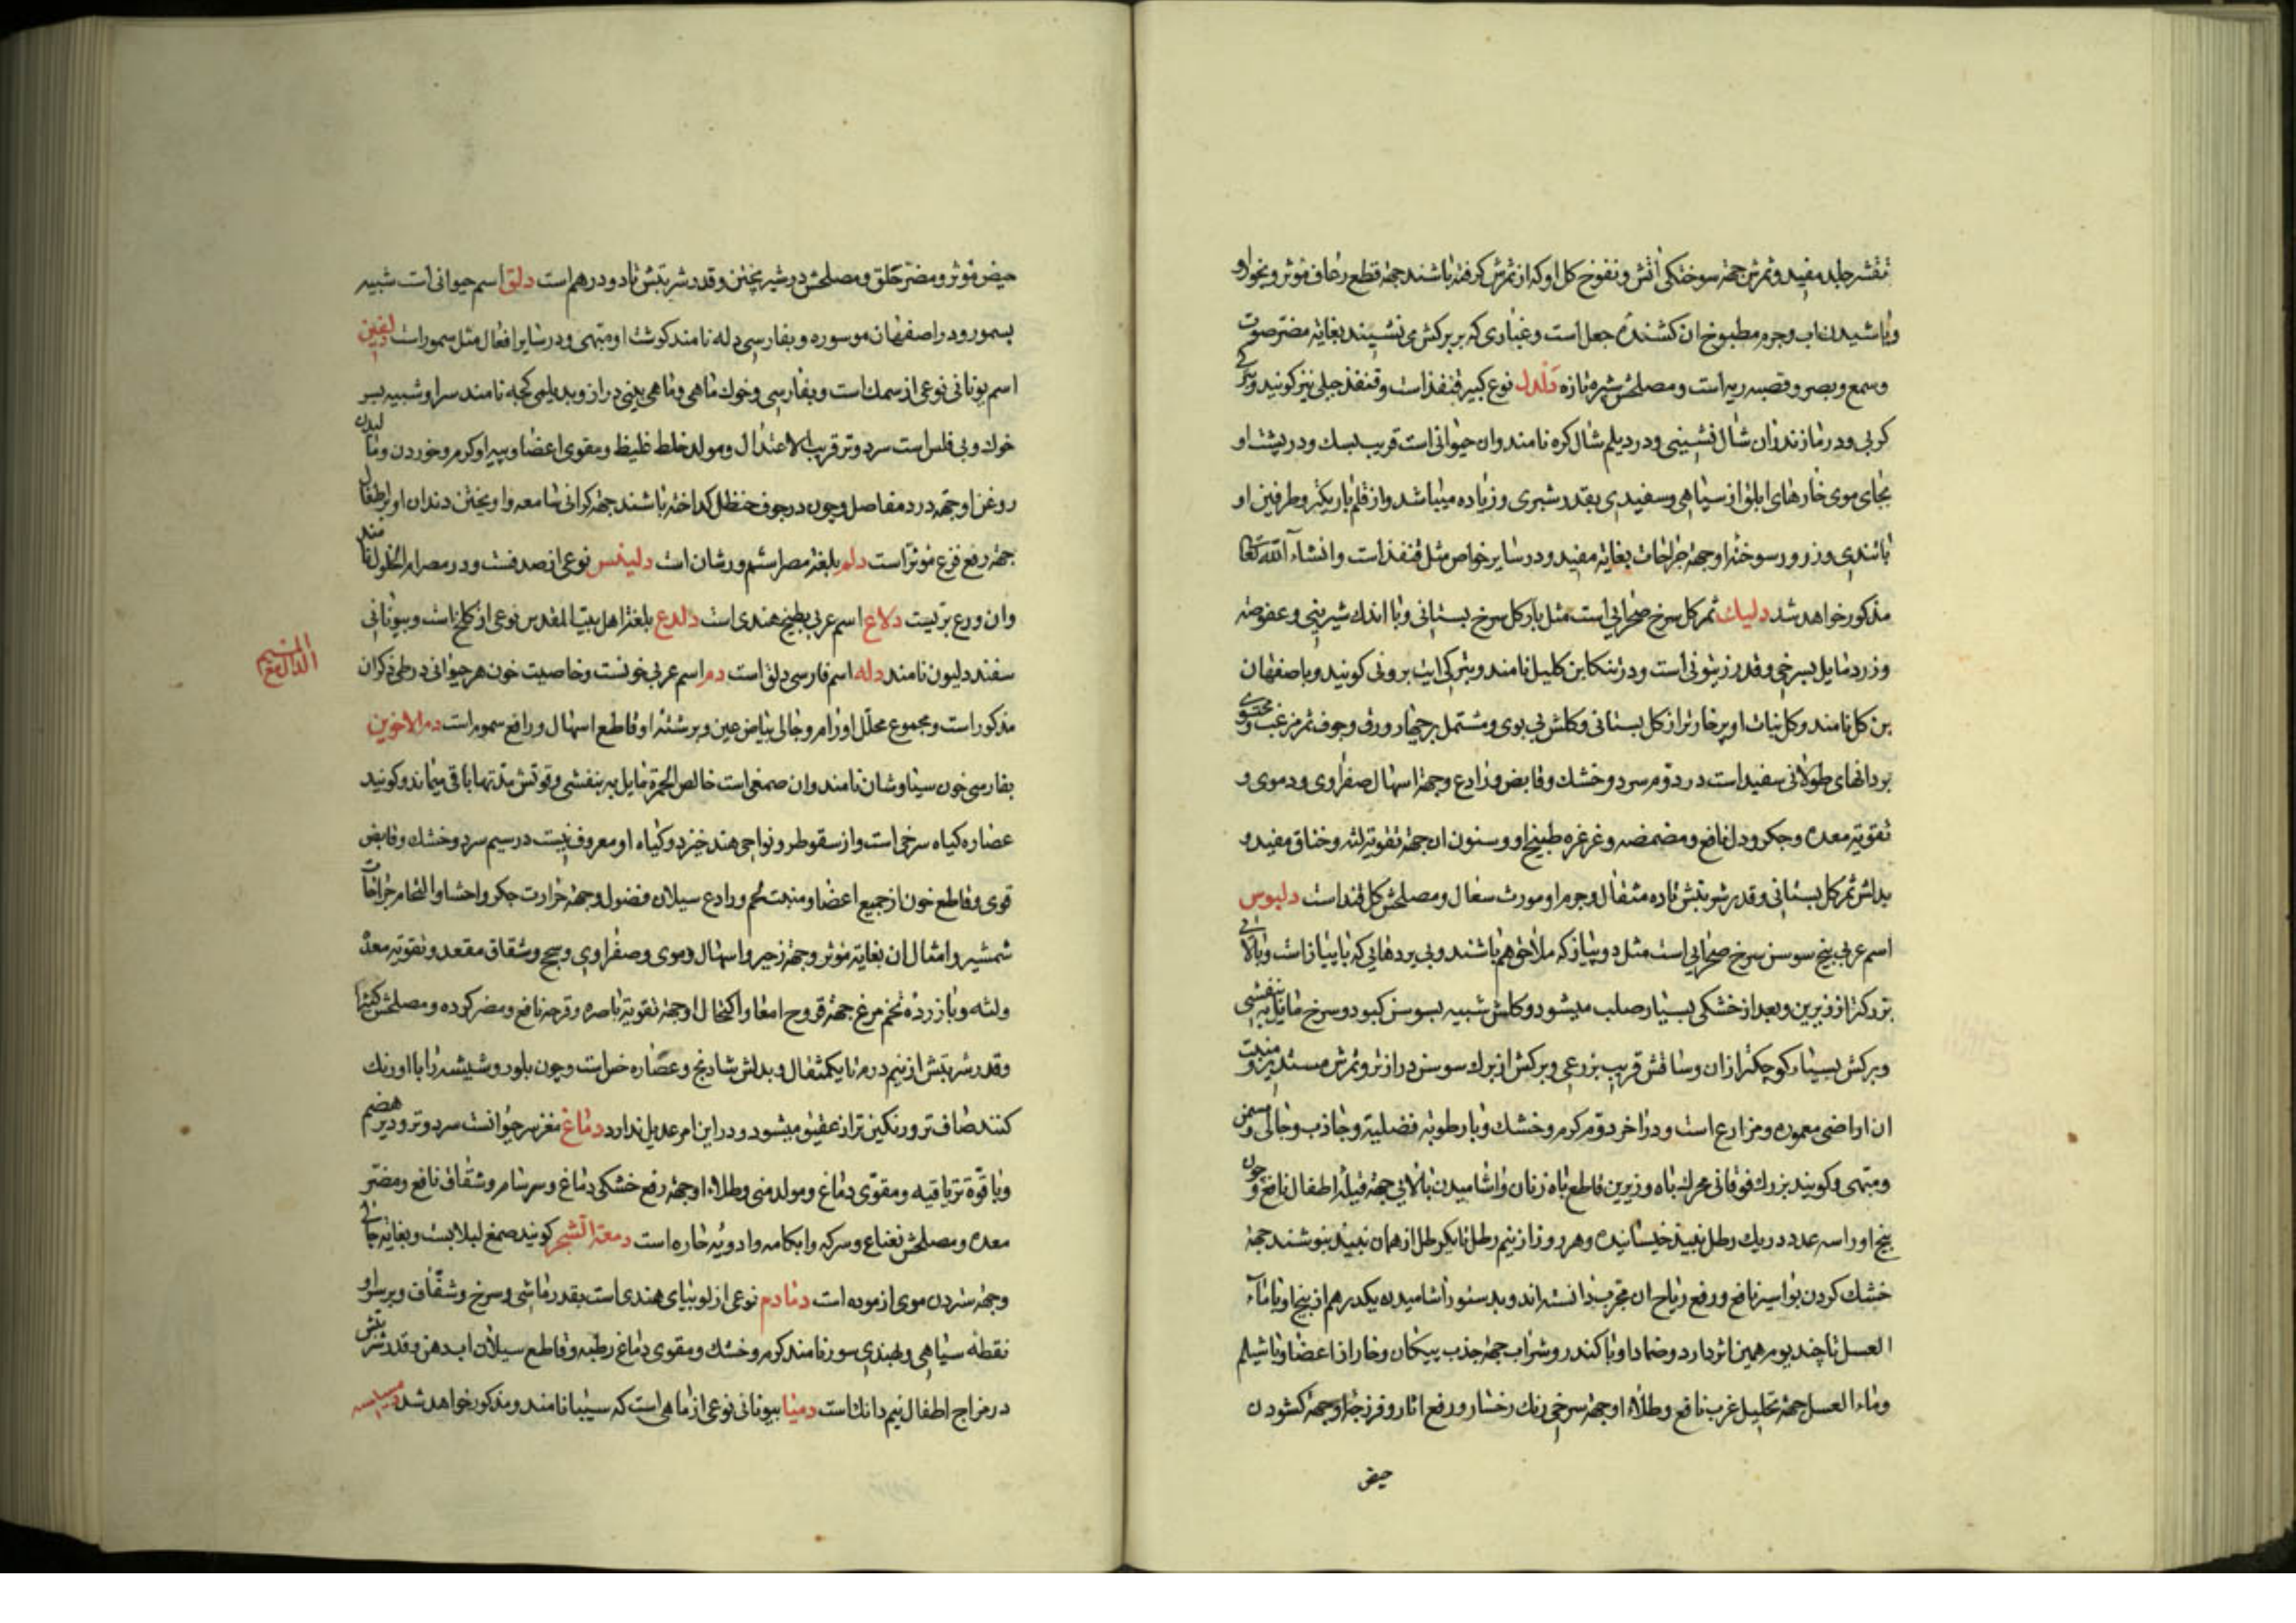 تقشر جلد مفید و ثمرش جهة سوختکی آتش و نفوخ کل او که از ثمرش کرفته باشند جهة قطع رعاف موثر و بخور او
و پاشیدن آب و جرم مطبوخ ان کشنده جعل است و غباری که بر برکش می نشیند بغایة مضر صوت
و سمع و بصر و قصبه ریه است و مصلحش شیره تازه دلدل نوع کبیر قنفذ است و قنفذ جبلی نیز کویند و بترکی
کرپی و در مازندران شال تشینی و در دیلم شال کره نامند و ان حیوانی است قریب بسک و در پشت او
بجای موی خارهای ابلق از سیاهی و سفیدی بقدر شبری و زیاده میباشد و از قلم باریکتر و طرفین او
باشندی و زرور سوخته او جهة جراحات بغایة مفید و در سایر خواص مثل قنفذ است و انشاء الله تعالی
مذکور خواهد شد دلیک ثمر کل سرخ صحرایی است مثل بار کل سرخ بستانی و با اندک شیرینی و عفوصة
و زرد مایل بسرخی و قدر زیتونی است و در تنکابن کلیل نامند و بترکی ایت برونی کویند و باصفهان
بن کل نامند و کل نبات او پرخارتر از کل بستانی و کلش بی بوی و مشتمل بر چهار ورق و جوف ثمر مزغب و محتوی
بر دانهای طولانی سفید است در دوم سرد و خشک و قابض و رادع و جهة اسهال صفراوی و دموی و
تقویة معده و جکر و دل نافع و مضمضه و غرغره طبیخ او و سنون ان جهة تقویة لثه و خناق مفید و
بدلش ثمر کل بستانی و قدر شربتش تا ده مثقال و جرم او مورث سعال و مصلحش کل قند است دلبوس
اسم عربی بیخ سوسن سرخ صحرایی است مثل دو پیاز که ملاحق هم باشند و بی پردهایی که با پیاز است و بالائی
بزرکتر از زیرین و بعد از خشکی بسیار صلب میشود و کلش شبیه بسوسن کبود و سرخ مایل به بنفشی
و برکش بسیار کوچکتر از ان و ساقش قریب بزرعی و برکش از برک سوسن درازتر و ثمرش مستدیر و منبت
ان اراضی معموره و مزارع است و در اخر دوم کرم و خشک و با رطوبة فضلیة و جاذب و جالی و مسمن
و مبهی و کویند بزرک فوقانی محرک باه و زیرین قاطع باه زنان و اشامیدن بالایی جهة فیله اطفال نافع و چون
بیخ او را سه عدد در یک رطل نبیذ خیسانیده و هر روز از نیم رطل تا یکرطل از همان نبیذ بنوشند جهة
خشک کردن بواسیر نافع و رفع ریاح ان مجرب دانسته اند و بدستور اشامیدن یکدرهم از بیخ او با ماء
العسل تا چند یوم همین اثر دارد و ضماد او با کندر و شراب جهة جذب پیکان و خار از اعضا و با شیلم
و ماء العسل جهة تحلیل غرب نافع و طلاء او جهة سرخی رنک رخسار و رفع اثار و فرزجه او جهة کشودن
حیض
حیض موثر و مضر حلق و مصلحش در شیر پختن و قدر شربتش تا دو درهم است دلق اسم حیوانی است شبیه
بسمور و در اصفهان موسوره و بفارسی دله نامند کوشت او مبهی و در سایر افعال مثل سمور است دلفین
اسم یونانی نوعی از سمک است و بفارسی خوک ماهی و ماهی بینی دراز و بدیلمی کجبه نامند سر او شبیه بسر
خوک و بی فلس است سرد و تر قریب الاعتدال و مولد خلط غلیظ و مقوی اعضا و پیه او کرم و خوردن و مالیدن
روغن او جهة درد مفاصل و چون در جوف حنظل کداخته باشند جهة کرانی سامعه و اویختن دندان او بر اطفال
جهة رفع فزع موثر است دلم بلغة مصر اسم ورشان است دلینس نوعی از صدفست و در مصر ام الخلول نامند
وان ورع بریست دلاع اسم عربی بطیخ هندی است دلدع بلغة اهل بیت المقدس نوعی از کلخ است و بیونانی
سفندلیون نامند دله اسم فارسی دلق است دم اسم عربی خونست و خاصیت خون هر حیوانی در طی ذکر ان
مذکور است و مجموع محلل اورام و جالی بیاض عین و برشته او قاطع اسهال و رافع سموم است دم الاخوین
بفارسی خون سیاوشان نامند وان صمغی است خالص الحمرة مایل به بنفشی و قوتش مدتها باقی میماند و کویند
عصاره کیاه سرخی است و از سقوطر و نواحی هند خیزد و کیاه او معروف نیست در سیم سرد و خشک و قابض
قوی و قاطع خون از جمیع اعضا و منبت لحم و رادع سیلان فضول و جهة حرارت جکر و احشا و التحام جراحات
شمشیر و امثال ان بغایة موثر و جهة زحیر و اسهال دموی و صفراوی و سحج و شقاق مقعد و تقویة معده
و لثه و با زرده تخم مرغ جهة قروح امعا و اکتحال او جهة تقویة باصره و قرحه نافع و مضر کرده و مصلحش کتیرا
و قدر شربتش از نیم درم تا یکمثقال و بدلش شادنج و عصاره خس است و چون بلور و شیشه را با او رنک
کنند صاف تر و رنکین تر از عقیق میشود و در این امر عدیل ندارد دماغ مغز سر حیوانست سرد و تر و دیر هضم
و با قوة تریاقیه و مقوی دماغ و مولد منی و طلاء او جهة رفع خشکی دماغ و سرسام و شقاق نافع و مضر
معده و مصلحش نعناع و سرکه و ابکامه و ادویه حاره است دمعة الشجر کویند صمغ لبلابست و بغایة جالی
و جهة ستردن موی ازموده است دمادم نوعی از لوبیای هندی است بقدر ماشی و سرخ و شفاف و بر سر او
نقطه سیاهی و بهندی سور نامند کرم و خشک و مقوی دماغ رطبه و قاطع سیلان اب دهن و قدر شربتش
در مزاج اطفال نیم دانک است دمینا بیونانی نوعی از ماهی است که سیبیا نامند و مذکور خواهد شد
الدال مع المیم